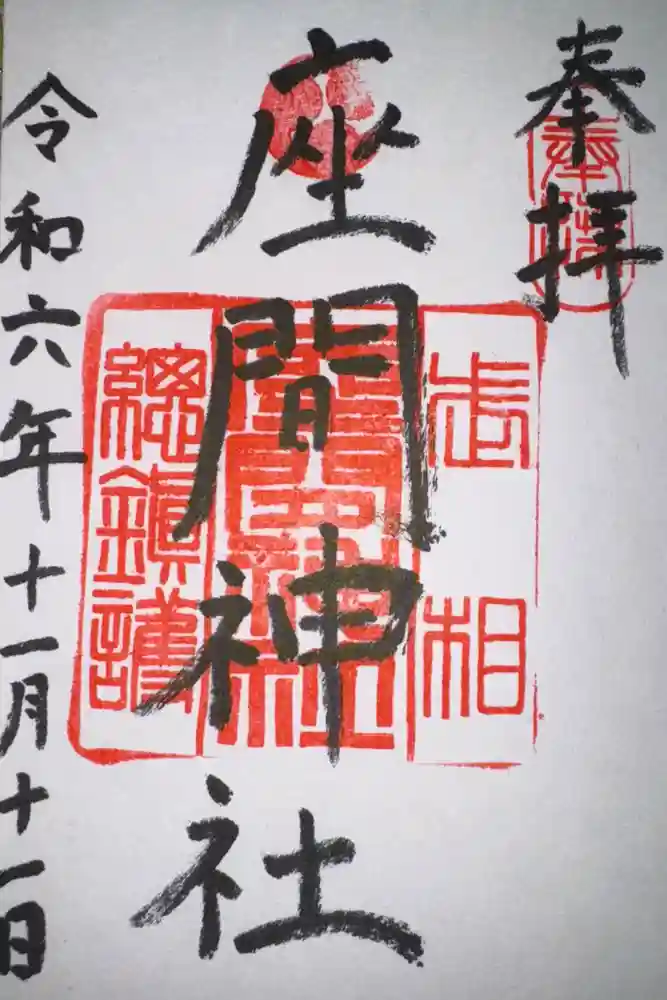 奉拝
奉拝
座間神社
武相
座間神社
総鎮護
令和六年十一月十一日